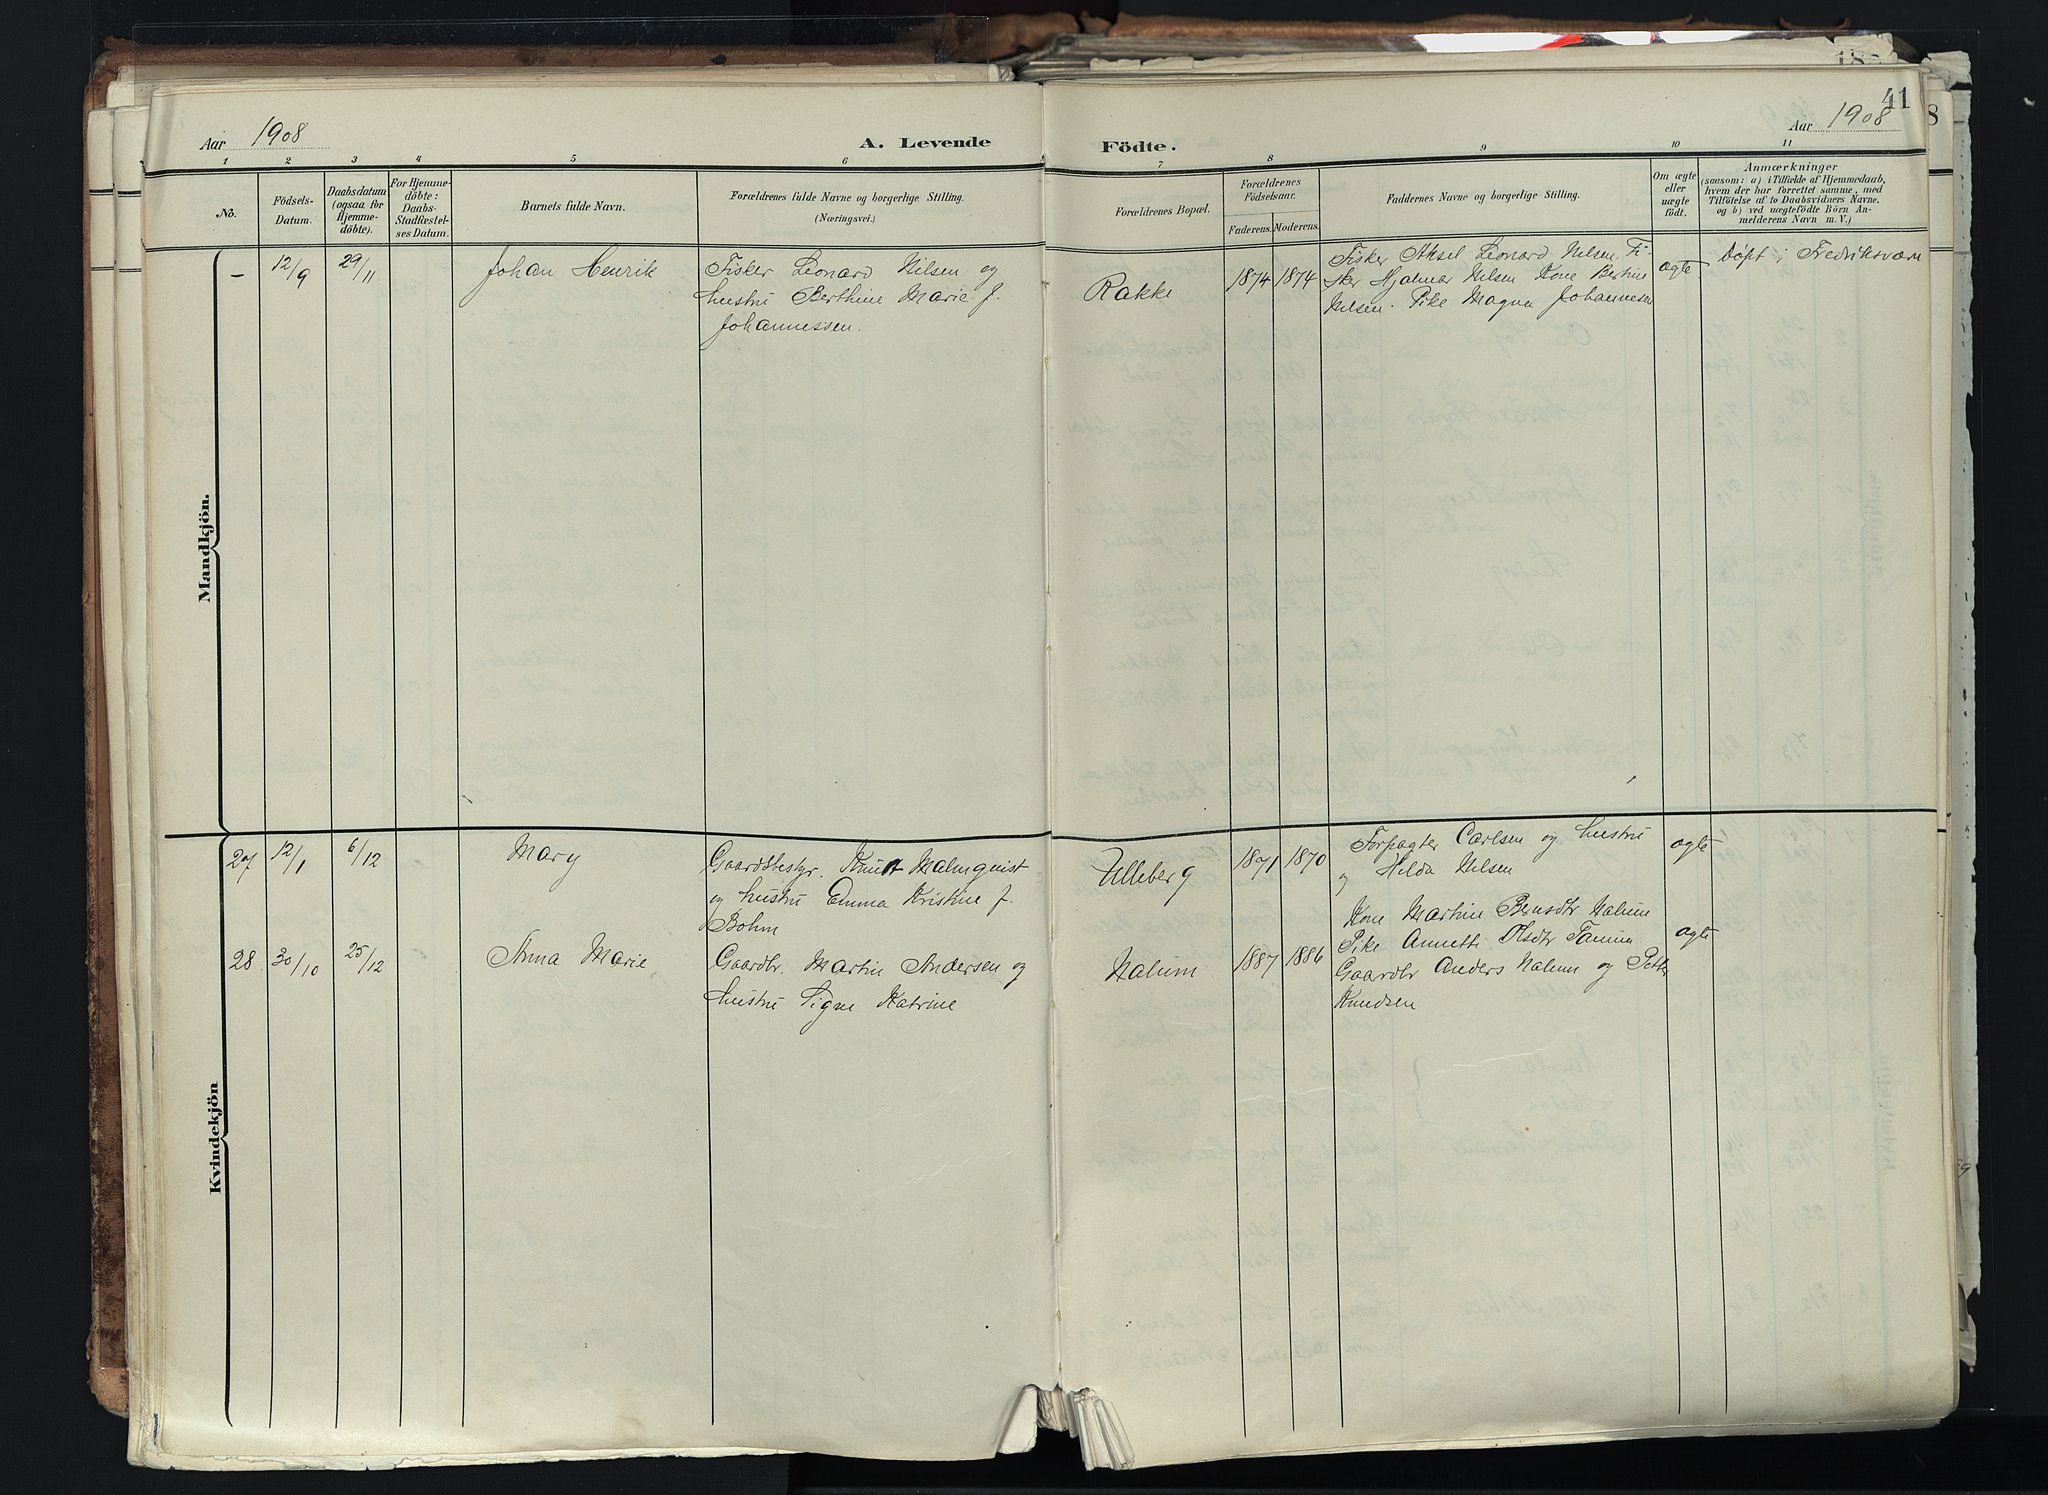 188
41
8
Aar 1908
A. Levende
Födte.
Aar 1908
1 2 3 4 5 6 7 8 9 10 11
No.
Födsels-
Datum.
Daabsdatum
(ogsaa for
Hjemme-
döbte).
For Hjemme-
döbte:
Daabs-
Stadfæstel-
ses Datum.
Barnets fulde Navn.
Forældrenes fulde Navne og borgerlige Stilling.
(Næringsvei.)
Forældrenes Bopæl.
Forældrenes
Födselsaar.
Faderens. Moderens.
Faddernes Navne og borgerlige Stilling.
Om ægte
eller
uægte
födt.
Anmærkninger
(saasom: a) i Tilfælde af Hjemmedaab,
hvem der har forrettet samme, med
Tilföielse af to Daabsvidners Navne,
og b) ved uægtefödte Börn An-
melderens Navn m. V.)
Mandkjön.
– 12/9 29/11 Johan Henrik
Fisker Leonard Nilsen og
hustru Berthine Marie f.
Johannessen.
Rakke 1874 1874
Fisker Aksel Leonard Nilsen. Fi-
sker Hjalmar Nilsen Kone Bertine
Nilsen. Pike Magna Johannesen
ægte
Døpt i Fredriksværn
Kvindekjön
27 12/1 6/12 Mary
Gaardsbestyr. Knut Malmquist
og hustru Emma Kristine f.
Bohm
Ulleberg 1871 1870
Forpagter Carlsen og hustru
og Hilda Nilsen
ægte
28 30/10 25/12 Anna Marie
Gaardbr. Martin Andersen og
hustru Signe Katrine
Nalum 1887 1886
Kone Martine Berntsdtr Nalum
Pike Annette Olsdtr Tanum
Gaardbr Anders Nalum og Petter
Knudsen
ægte